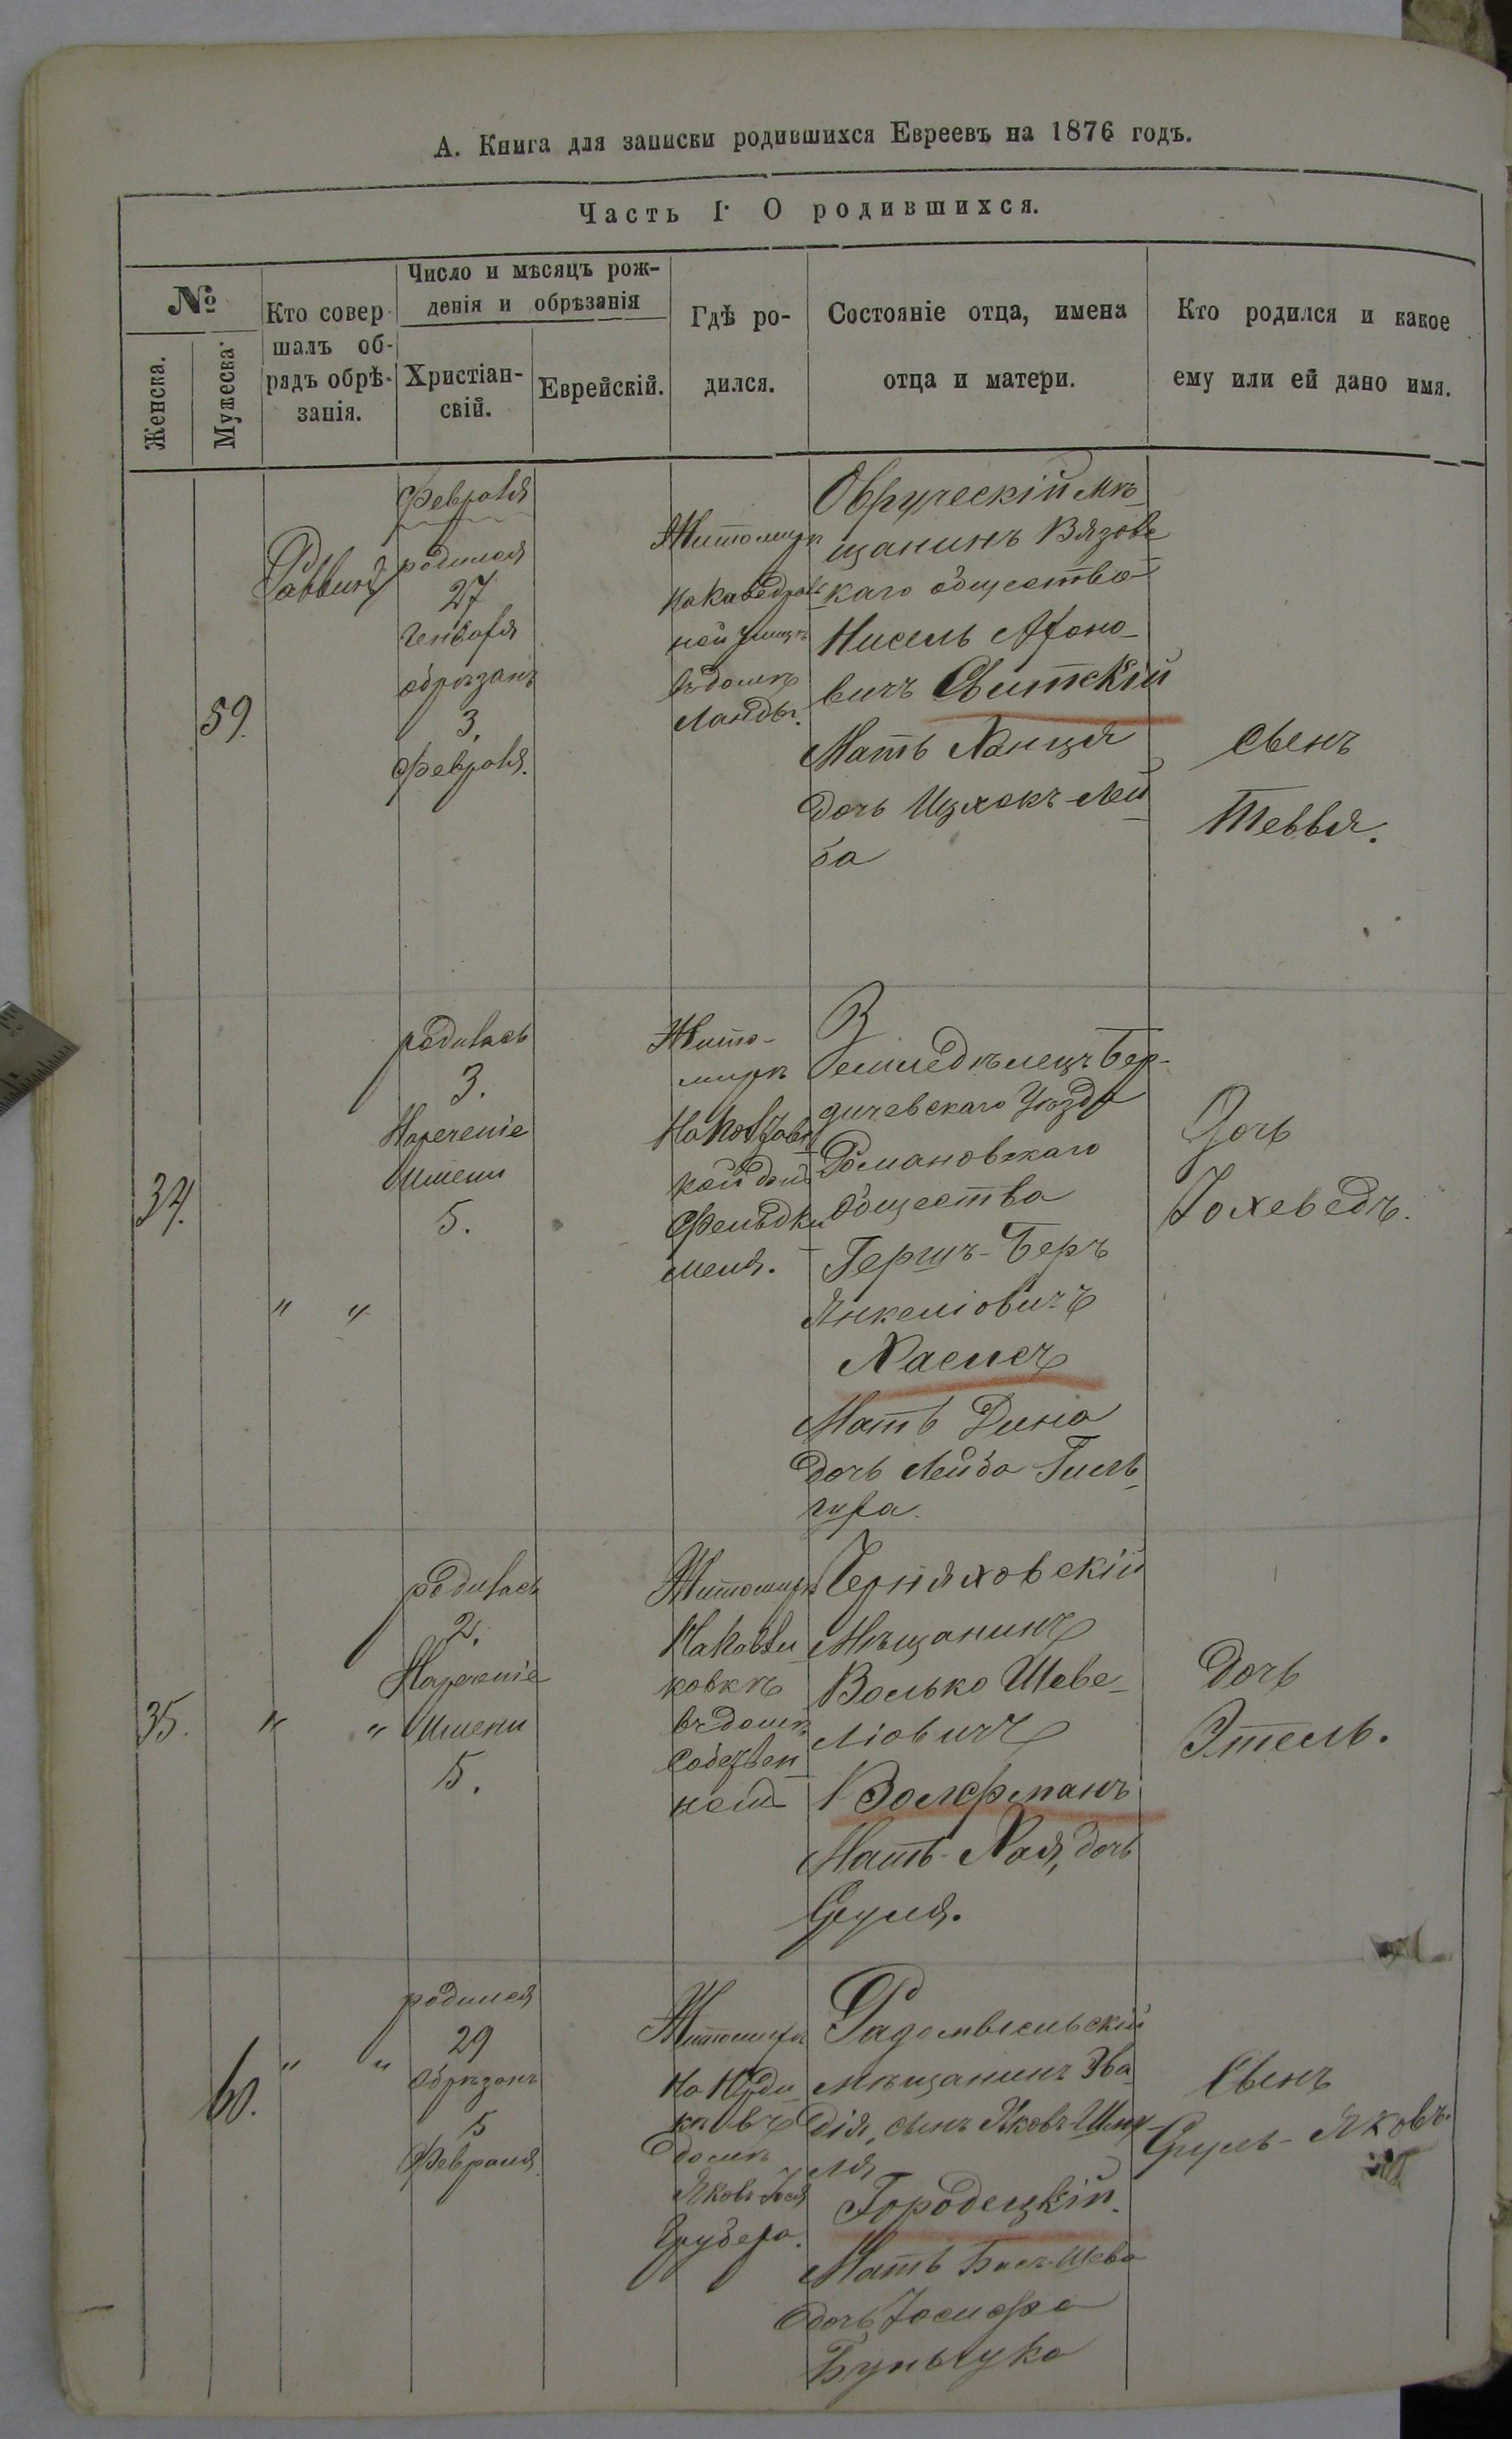 А. Книга для записки родившихся Евреевъ на 1876 годъ.
Часть I. О родившихся.
№
Женска.
Мужеска.
Кто совер-
шалъ об-
рядъ обрѣ-
занія.
Число и мѣсяцъ рож-
денія и обрѣзанія
Христіан-
скій.
Еврейскій.
Гдѣ ро-
дился.
Состояніе отца, имена
отца и матери.
Кто родился и какое
ему или ей дано имя.
59.
Раввинъ
Февраля
родился
27
Генваря
обрѣзанъ
3.
Февраля.
Житомирѣ
на Кафедраль
ной улицѣ
въ домѣ
Ланды.
Овруческій мѣ
щанинъ Вязовс
каго общества
Нисель
вичъ Свитскій
Мать Ханця
дочь Ицхокъ-Лей
ба
Сынъ
Тевья.
34.
" "
родилась
3.
Нареченіе
имени
5.
Жито-
мирѣ
кой домъ
Фельдш
меля.
Земледѣлецъ Бер-
дичевскаго Уѣзда
Романовскаго
Общества
Гершъ-Беръ
Янкеліовичъ
Хаемсъ
Мать Дина
дочь Лейба Гиль
гура.
Дочь
Іохеведъ.
35.
" "
родилась
2.
Нареченіе
имени
5.
Житомирѣ
ковкѣ
въ домѣ
собствен
номъ
Черняховскій
Мѣщанинъ
Волько Шеве-
ліовичъ
Волфманъ
Мать Хая, дочь
Сруля.
Дочь
Этель.
60.
" "
родился
29
Обрѣзанъ
5
Февраля.
Житомирѣ
въ
домѣ
Яковъ Іося
Грубера.
Радомысльскій
мѣщанинъ Ова
дія, сынъ Яковъ-Шму
ля
Городецкій.
Мать Бася-Шева
дочь Іосифа
Бунчука
Сынъ
Сруль-Яковъ.